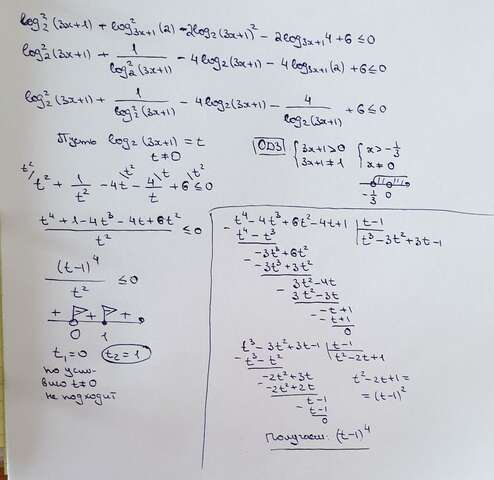 log₂²(3x+1) + log²₃ₓ₊₁(2) - 2log₂(3x+1)² - 2log₃ₓ₊₁4 + 6 ≤ 0
log₂²(3x+1) + 1/log₂²(3x+1) - 4log₂(3x+1) - 4log₃ₓ₊₁(2) + 6 ≤ 0
log₂²(3x+1) + 1/log₂²(3x+1) - 4log₂(3x+1) - 4/log₂(3x+1) + 6 ≤ 0
Пусть log₂(3x+1) = t
t ≠ 0
ОДЗ { 3x+1>0 { x>-1/3
3x+1≠1 x≠0
-1/3 0
t² t² t t²
t² + 1/t² - 4t - 4/t + 6 ≤ 0
t⁴+1-4t³-4t+6t²/t² ≤ 0
(t-1)⁴/t² ≤ 0
+ + +
0 1
t₁=0 t₂=1
по усло-
вию t≠0
не подходит
t⁴-4t³+6t²-4t+1 | t-1
- t⁴-t³ t³-3t²+3t-1
-3t³+6t²
- -3t³+3t²
3t²-4t
- 3t²-3t
-t+1
- -t+1
0
t³-3t²+3t-1 | t-1
- t³-t² t²-2t+1
-2t²+3t
- -2t²+2t
t-1
- t-1
0
t²-2t+1=
=(t-1)²
Получаем: (t-1)⁴